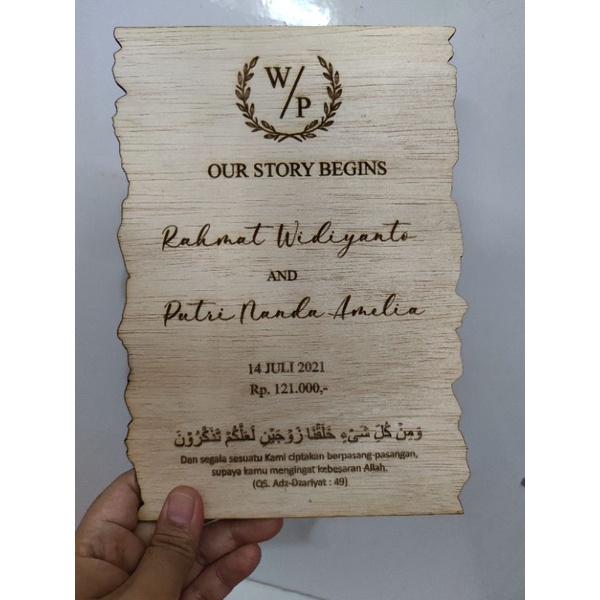 W/P
OUR STORY BEGINS
Rahmat Widiyanto
AND
Putri Nanda Amelia
14 JULI 2021
Rp. 121.000,-
وَمِنْ كُلِّ شَيْءٍ خَلَقْنَا زَوْجَيْنِ لَعَلَّكُمْ تَذَكَّرُوْنَ
Dan segala sesuatu Kami ciptakan berpasang-pasangan,
supaya kamu mengingat kebesaran Allah.
(QS. Adz-Dzariyat : 49)